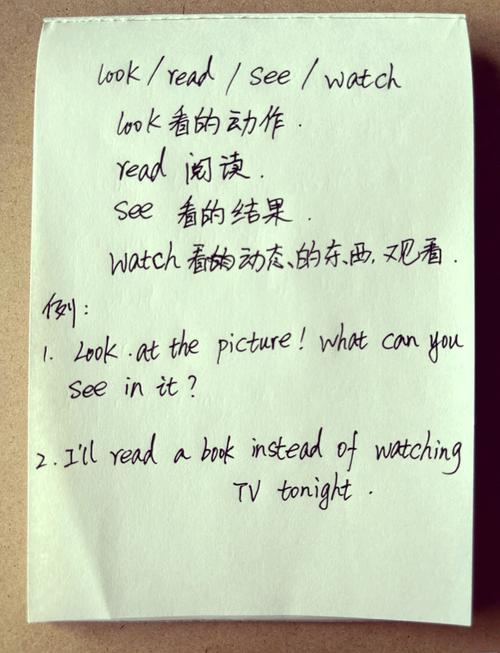 look / read / see / watch
look 看的动作.
read 阅读.
see 看的结果.
watch 看的动态的东西,观看.
例:
1. Look at the picture! What can you
see in it?
2. I'll read a book instead of watching
TV tonight.